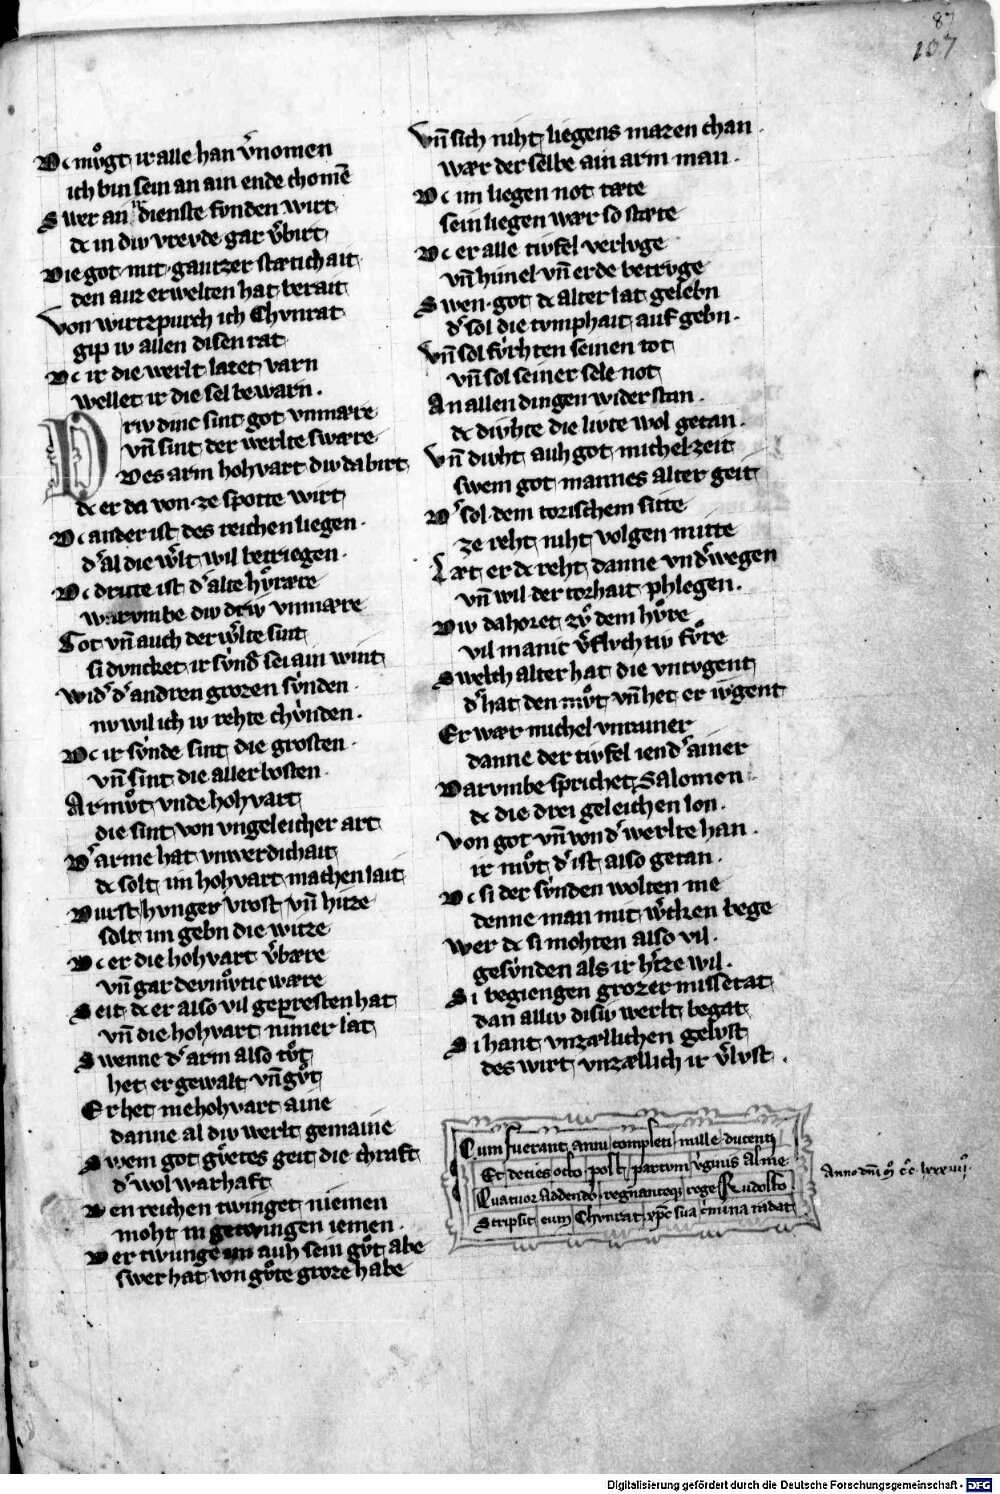 87
107
Dc mv̊gt ir alle han v̾nomen
ich bin sein an ain ende chomē
Swer an dienste fvnden wirt
dc in div vrevde gar v̾birt
Die got mit gantzer stætichait
den auz erwelten hat berait
Von wirtzpurch ich Chvnrat
gip iv allen disen rat
Dc ir die werlt lazet varn
wellet ir die sel bewarn.
Driv dinc sint got vnmære
vn̄ sint der werlte swære
Des arm hohvart div da birt
dc er da von ze spotte wirt
Dc ander ist des reichen liegen.
d̾ al die w̾lt wil betriegen.
Dc dritte ist d̾ alte hv̊rære
warvmbe div driv vnmære
Got vn̄ auch der w̾lte sint
si dvncket ir sv̍nd̾ sei ain wint
wid̾ d̾ andren grozen sv̍nden.
nv wil ich iv rehte chv̍nden.
Dc ir sv̍nde sint die grosten.
vn̄ sint die aller bosten.
Armv̊t vnde hohvart
die sint von vngeleicher art
D̾ arme hat vnwerdichait
dc solt im hohvart machen lait
Durst hvnger vrost vn̄ hitze
solt im gebn die witze
Dc er die hohvart v̾bære
vn̄ gar devmv̊tic wære
Seit dc er also vil gepresten hat
vn̄ die hohvart nīmer lat
Swenne d̾ arm also tv̊t
het er gewalt vn̄ gv̊t
Er het me hohvart aine
danne al div werlt gemaine
Swem got gv̊tes geit die chraft
d̾ wol warhaft
Den reichen twinget niemen
moht in getwingen iemen.
Der twunge in auh sein gv̊t abe
swer hat von gv̊te groze habe
Vn̄ sich niht liegens mazen chan.
wær der selbe ain arm man.
Dc im liegen not tæte
sein liegen wær so stæte
Dc er alle tivfel verlvge
vn̄ himel vn̄ erde betrvge
Swen got dc alter lat gelebn
d̾ sol die tvmphait auf gebn.
Vn̄ sol fv̍rhten seinen tot
vn̄ sol seiner sele not
An allen dingen widerstan.
dc divhte die livte wol getan.
Vn̄ divht auh got michel zeit
swem got mannes alter geit
D̾ sol dem torischem sitte
ze reht niht volgen mitte
Læt er dc reht danne vnd̾wegen
vn̄ wil der torhait phlegen.
Div da horet zv̊ dem hv̊re
vil manic v̾flvchtiv fv̊re
Swelch alter hat die vntvgent
d̾ hat den mv̊t vn̄ het er ivgent
Er wær michel vnrainer
danne der tivfel iend̾ ainer
Darvmbe sprichet Salomon
dc die drei geleichen lon.
Von got vn̄ von d̾ werlte han.
ir mv̊t d̾ ist also getan.
Dc si der sv̍nden wolten me
denne man mit w̾cken bege
Wer dc si mohten also vil.
gesv̍nden als ir h̾tze wil.
Si begiengen grozer missetat
dan alliv disiv werlt begat
Si hant vnzællichen gelvst
des wirt vnzællich ir v̾lvst.
Cum fuerant anni completi mille ducenti
Et decies octo post partum v̾ginis alme.
Quatuor addendo regnanteqz rege Rudolfo.
Scripsit eum Chvnrat xp̄e sua c̾mina radat
Anno dn̄i M̊ c̊c̊ lxxxiiij.
Digitalisierung gefördert durch die Deutsche Forschungsgemeinschaft - DFG